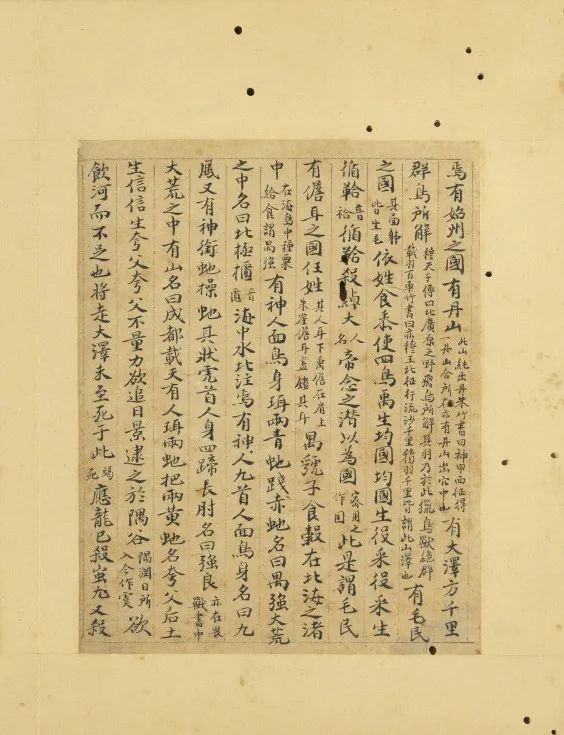 焉有始州之國有丹山此山純出丹朱竹書曰神甲西征得一丹山今所在亦有丹山出穴中也有大澤方千里
群鳥所解穆天子傳曰北廣原之野飛鳥所解其羽乃於此獵鳥獸絕群載羽百車竹書曰亦穆王北征行流沙千里積羽千里皆謂此山澤也有毛民
之國其面體皆生毛依姓食黍使四鳥禹生均國均國生役采役采生
循鞈音袷循鞈殺綽大人名帝念之潛以為國密用之作国此是謂毛民
有儋耳之國任姓其人耳下儋在肩上朱崖儋耳畫鏤其耳禺號子食穀在北海之渚
中在海島中種粟給食謂禺強有神人面鳥身珥兩青虵踐赤虵名曰禺強大荒
之中名曰北極櫃音匱海中水北注焉有神人九首人面鳥身名曰九
凮又有神銜虵操虵其狀虎首人身四蹄長肘名曰強良亦在畏獸書中
大荒之中有山名曰成都載天有人珥兩虵把兩黃虵名夸父后土
生信信生夸父夸父不量力欲追日景逮之於隅谷隅淵日所入今作虞欲
飲河而不足也將走大澤未至死于此渴死應龍已殺蚩尤又殺